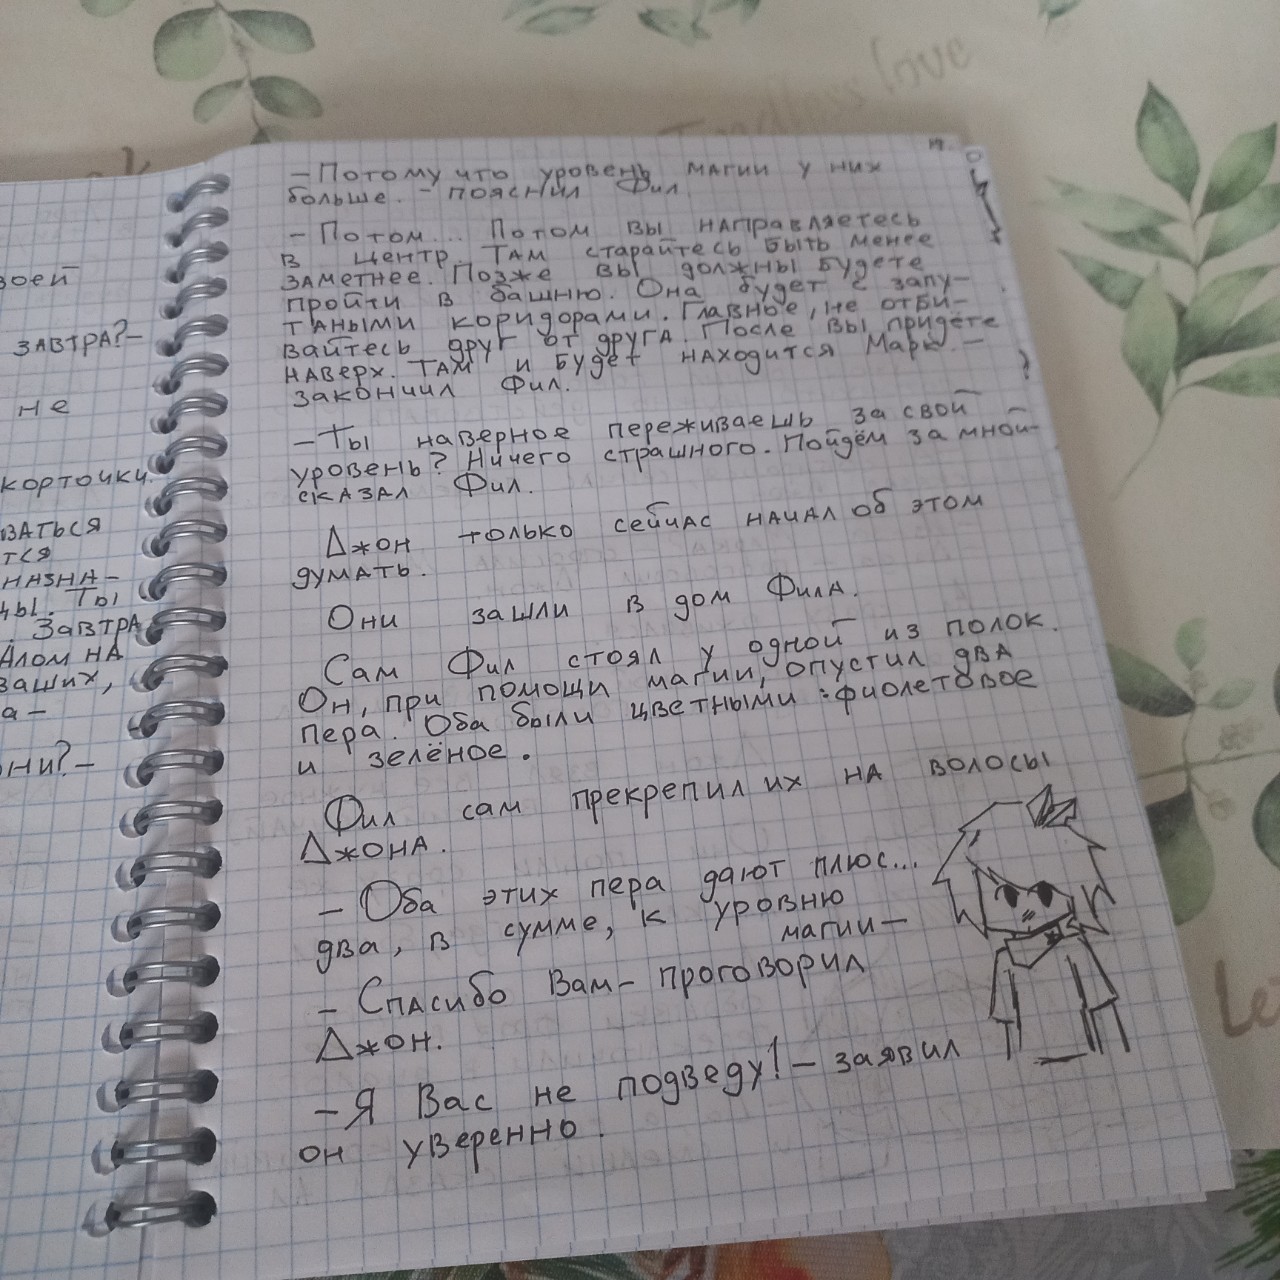 воей
завтра?-
не
корточки.
ваться
тся
назна-
цы. Ты
. Завтра
алом на
ваших,
а-
они?-
- Потому что уровень магии у них
больше. - пояснил Фил.
- Потом... Потом вы направляетесь
в центр. Там старайтесь быть менее
заметнее. Позже вы должны будете
пройти в башню. Она будет с запу-
таными коридорами. Главное, не отби-
вайтесь друг от друга. После вы придёте
наверх. Там и будет находится Марк. -
закончил Фил.
- Ты наверное переживаешь за свой
уровень? Ничего страшного. Пойдём за мной-
сказал Фил.
Джон только сейчас начал об этом
думать.
Они зашли в дом Фила.
Сам Фил стоял у одной из полок.
Он, при помощи магии, опустил два
пера. Оба были цветными: фиолетовое
и зелёное.
Фил сам прекрепил их на волосы
Джона.
- Оба этих пера дают плюс...
два, в сумме, к уровню
магии-
- Спасибо Вам- проговорил
Джон.
- Я Вас не подведу! - заявил
он уверенно.